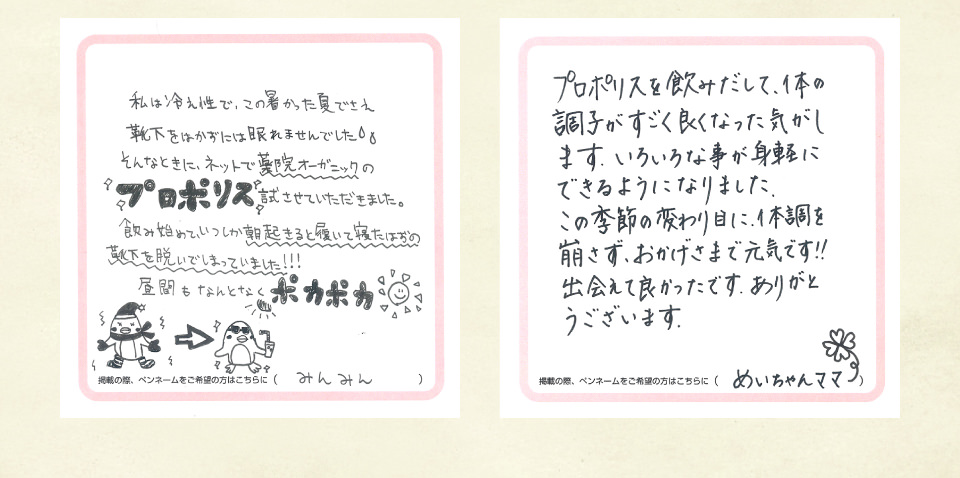 私は冷え性で、この暑かった夏でさえ
靴下をはかずには眠れませんでした
そんなときに、ネットで薬院オーガニックの
プロポリス試させていただきました。
飲み始めて、いつしか朝起きると履いて寝たはずの
靴下を脱いでしまっていました!!!
昼間もなんとなくポカポカ
掲載の際、ペンネームをご希望の方はこちらに ( みんみん )
プロポリスを飲みだして、体の
調子がすごく良くなった気がし
ます。いろいろな事が身軽に
できるようになりました。
この季節の変わり目に、体調を
崩さず、おかげさまで元気です!!
出会えて良かったです。ありがと
うございます。
掲載の際、ペンネームをご希望の方はこちらに ( めいちゃんママ )